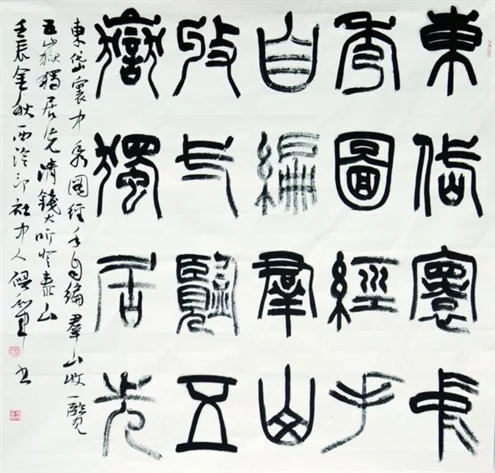 東岱寰中
秀圖經手
自編羣山
收弌覽五
嶽獨居先
東岱寰中秀圖經手自編羣山收一覽
五嶽獨居先清錢大昕登泰山
壬辰金秋西泠印社中人書